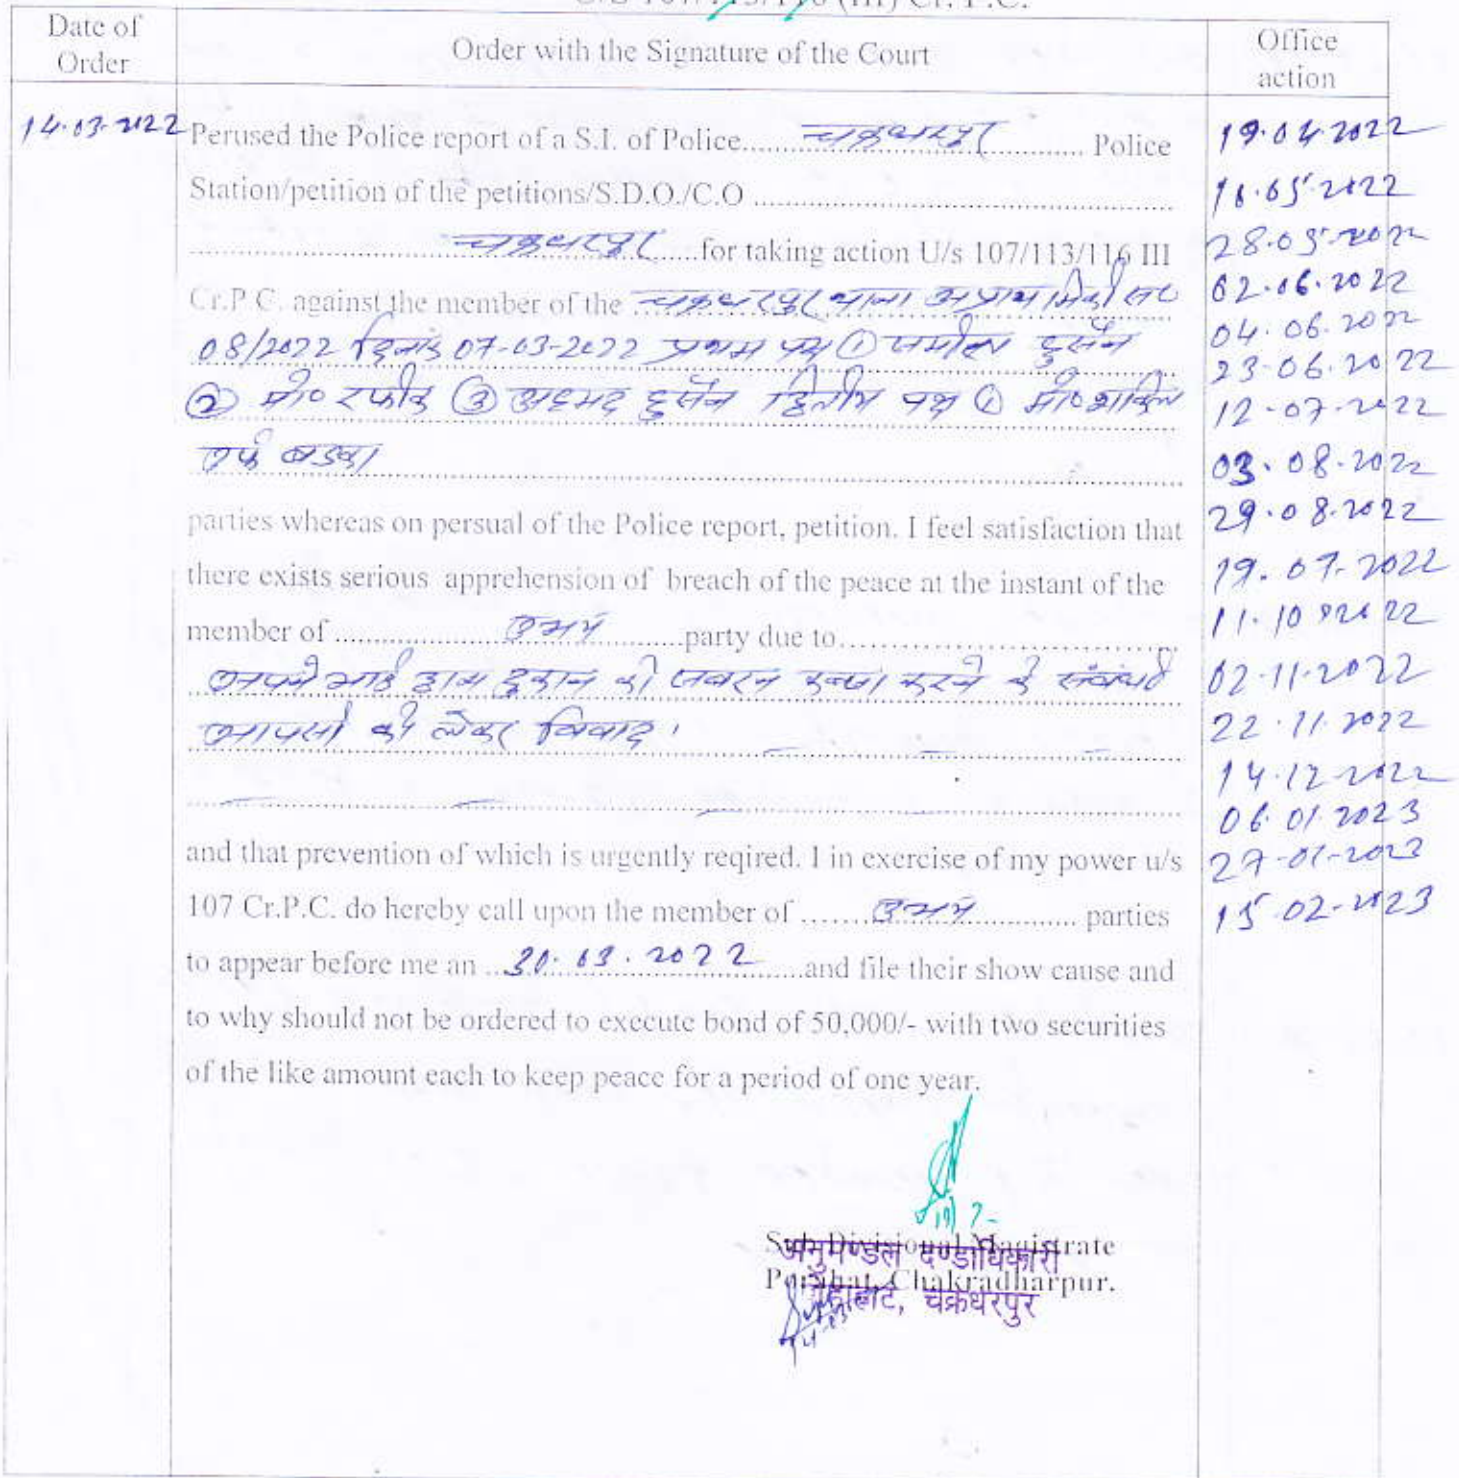 U/S 107/113/116 (III) Cr. P.C.
Date of Order
Order with the Signature of the Court
Office action
14.03.2022
Perused the Police report of a S.I. of Police...... चक्रधरपुर ...... Police
Station/petition of the petitions/S.D.O./C.O ......
...... चक्रधरपुर ......for taking action U/s 107/113/116 III
Cr.P C. against the member of the चक्रधरपुर थाना अप्राथमिकी सं०
08/2022 दिनांक 07-03-2022 प्रथम पक्ष ① जमील हुसैन
② मो० रफीक ③ अहमद हुसैन द्वितीय पक्ष ① मो० शकिल
उर्फ बड़का
parties whereas on persual of the Police report, petition. I feel satisfaction that
there exists serious apprehension of breach of the peace at the instant of the
member of ...... उभय ......party due to......
अपने भाई द्वारा दुकान को जबरन कब्जा करने के संबंध
को लेकर विवाद।
and that prevention of which is urgently reqired. I in exercise of my power u/s
107 Cr.P.C. do hereby call upon the member of ...... उभय ...... parties
to appear before me an ..30.03.2022......and file their show cause and
to why should not be ordered to execute bond of 50,000/- with two securities
of the like amount each to keep peace for a period of one year.
Sub Divisional Magistrate
Porahat, Chakradharpur.
अनुमण्डल दण्डाधिकारी
पोड़ाहाट, चक्रधरपुर
19.04.2022
28.05.2022
02.06.2022
04.06.2022
23-06.2022
12-07-2022
03.08.2022
29.08.2022
11.10.2022
02.11.2022
22.11.2022
14.12.2022
06.01.2023
27-01-2023
15-02-2023